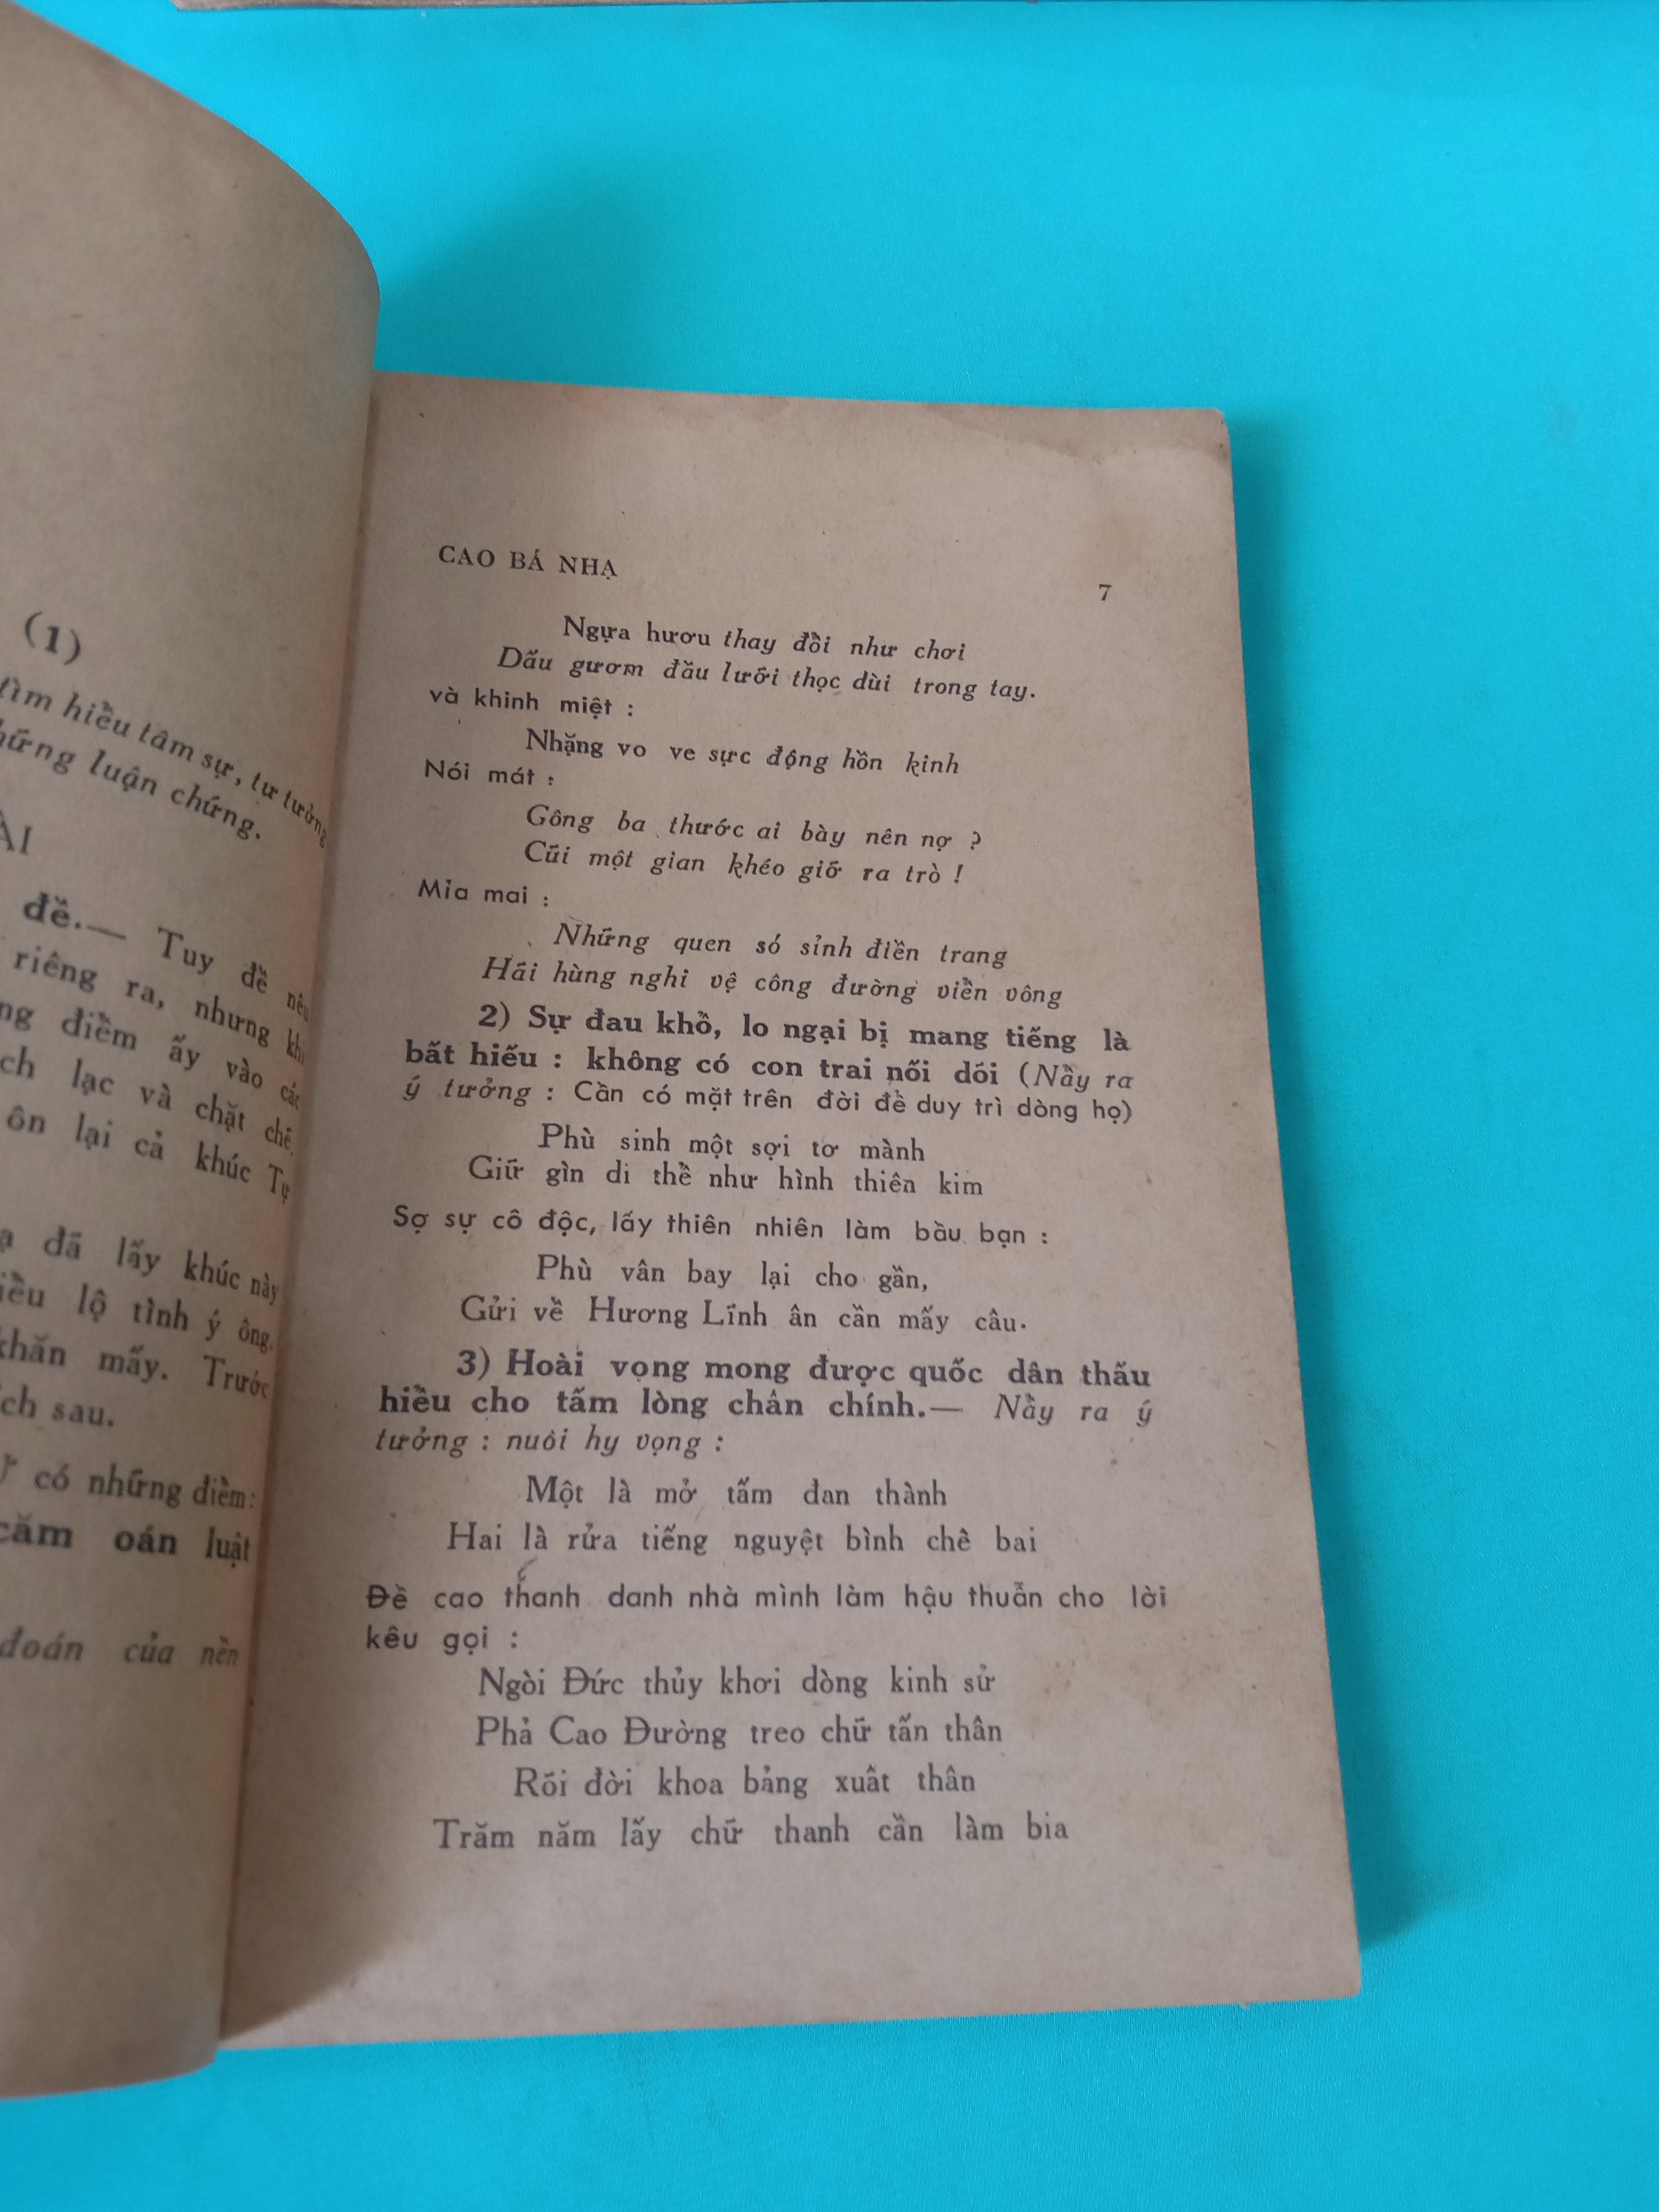 (1)
tìm hiểu tâm sự, tư tưởng
luận chứng.
đề.— Tuy đề nêu
riêng ra, nhưng khi
điểm ấy vào các
lạc và chặt chẽ
ôn lại cả khúc Tự
đã lấy khúc này
lộ tình ý ông.
khăn mấy. Trước
sau.
có những điểm:
căm oán luật
đoán của nền
CAO BÁ NHẠ
7
Ngựa hươu thay đổi như chơi
Dấu gươm đầu lưỡi thọc dùi trong tay.
và khinh miệt :
Nhặng vo ve sực động hồn kinh
Nói mát :
Gông ba thước ai bày nên nợ ?
Cũi một gian khéo giở ra trò !
Mỉa mai :
Những quen só sỉnh điền trang
Hãi hùng nghi vệ công đường viển vông
2) Sự đau khổ, lo ngại bị mang tiếng là
bất hiếu : không có con trai nối dõi (Nầy ra
ý tưởng : Cần có mặt trên đời để duy trì dòng họ)
Phù sinh một sợi tơ mành
Giữ gìn di thể như hình thiên kim
Sợ sự cô độc, lấy thiên nhiên làm bầu bạn :
Phù vân bay lại cho gần,
Gửi về Hương Lĩnh ân cần mấy câu.
3) Hoài vọng mong được quốc dân thấu
hiểu cho tấm lòng chân chính.— Nầy ra ý
tưởng : nuôi hy vọng :
Một là mở tấm đan thành
Hai là rửa tiếng nguyệt bình chê bai
Đề cao thanh danh nhà mình làm hậu thuẫn cho lời
kêu gọi :
Ngòi Đức thủy khơi dòng kinh sử
Phả Cao Đường treo chữ tấn thân
Rõi đời khoa bảng xuất thân
Trăm năm lấy chữ thanh cần làm bia